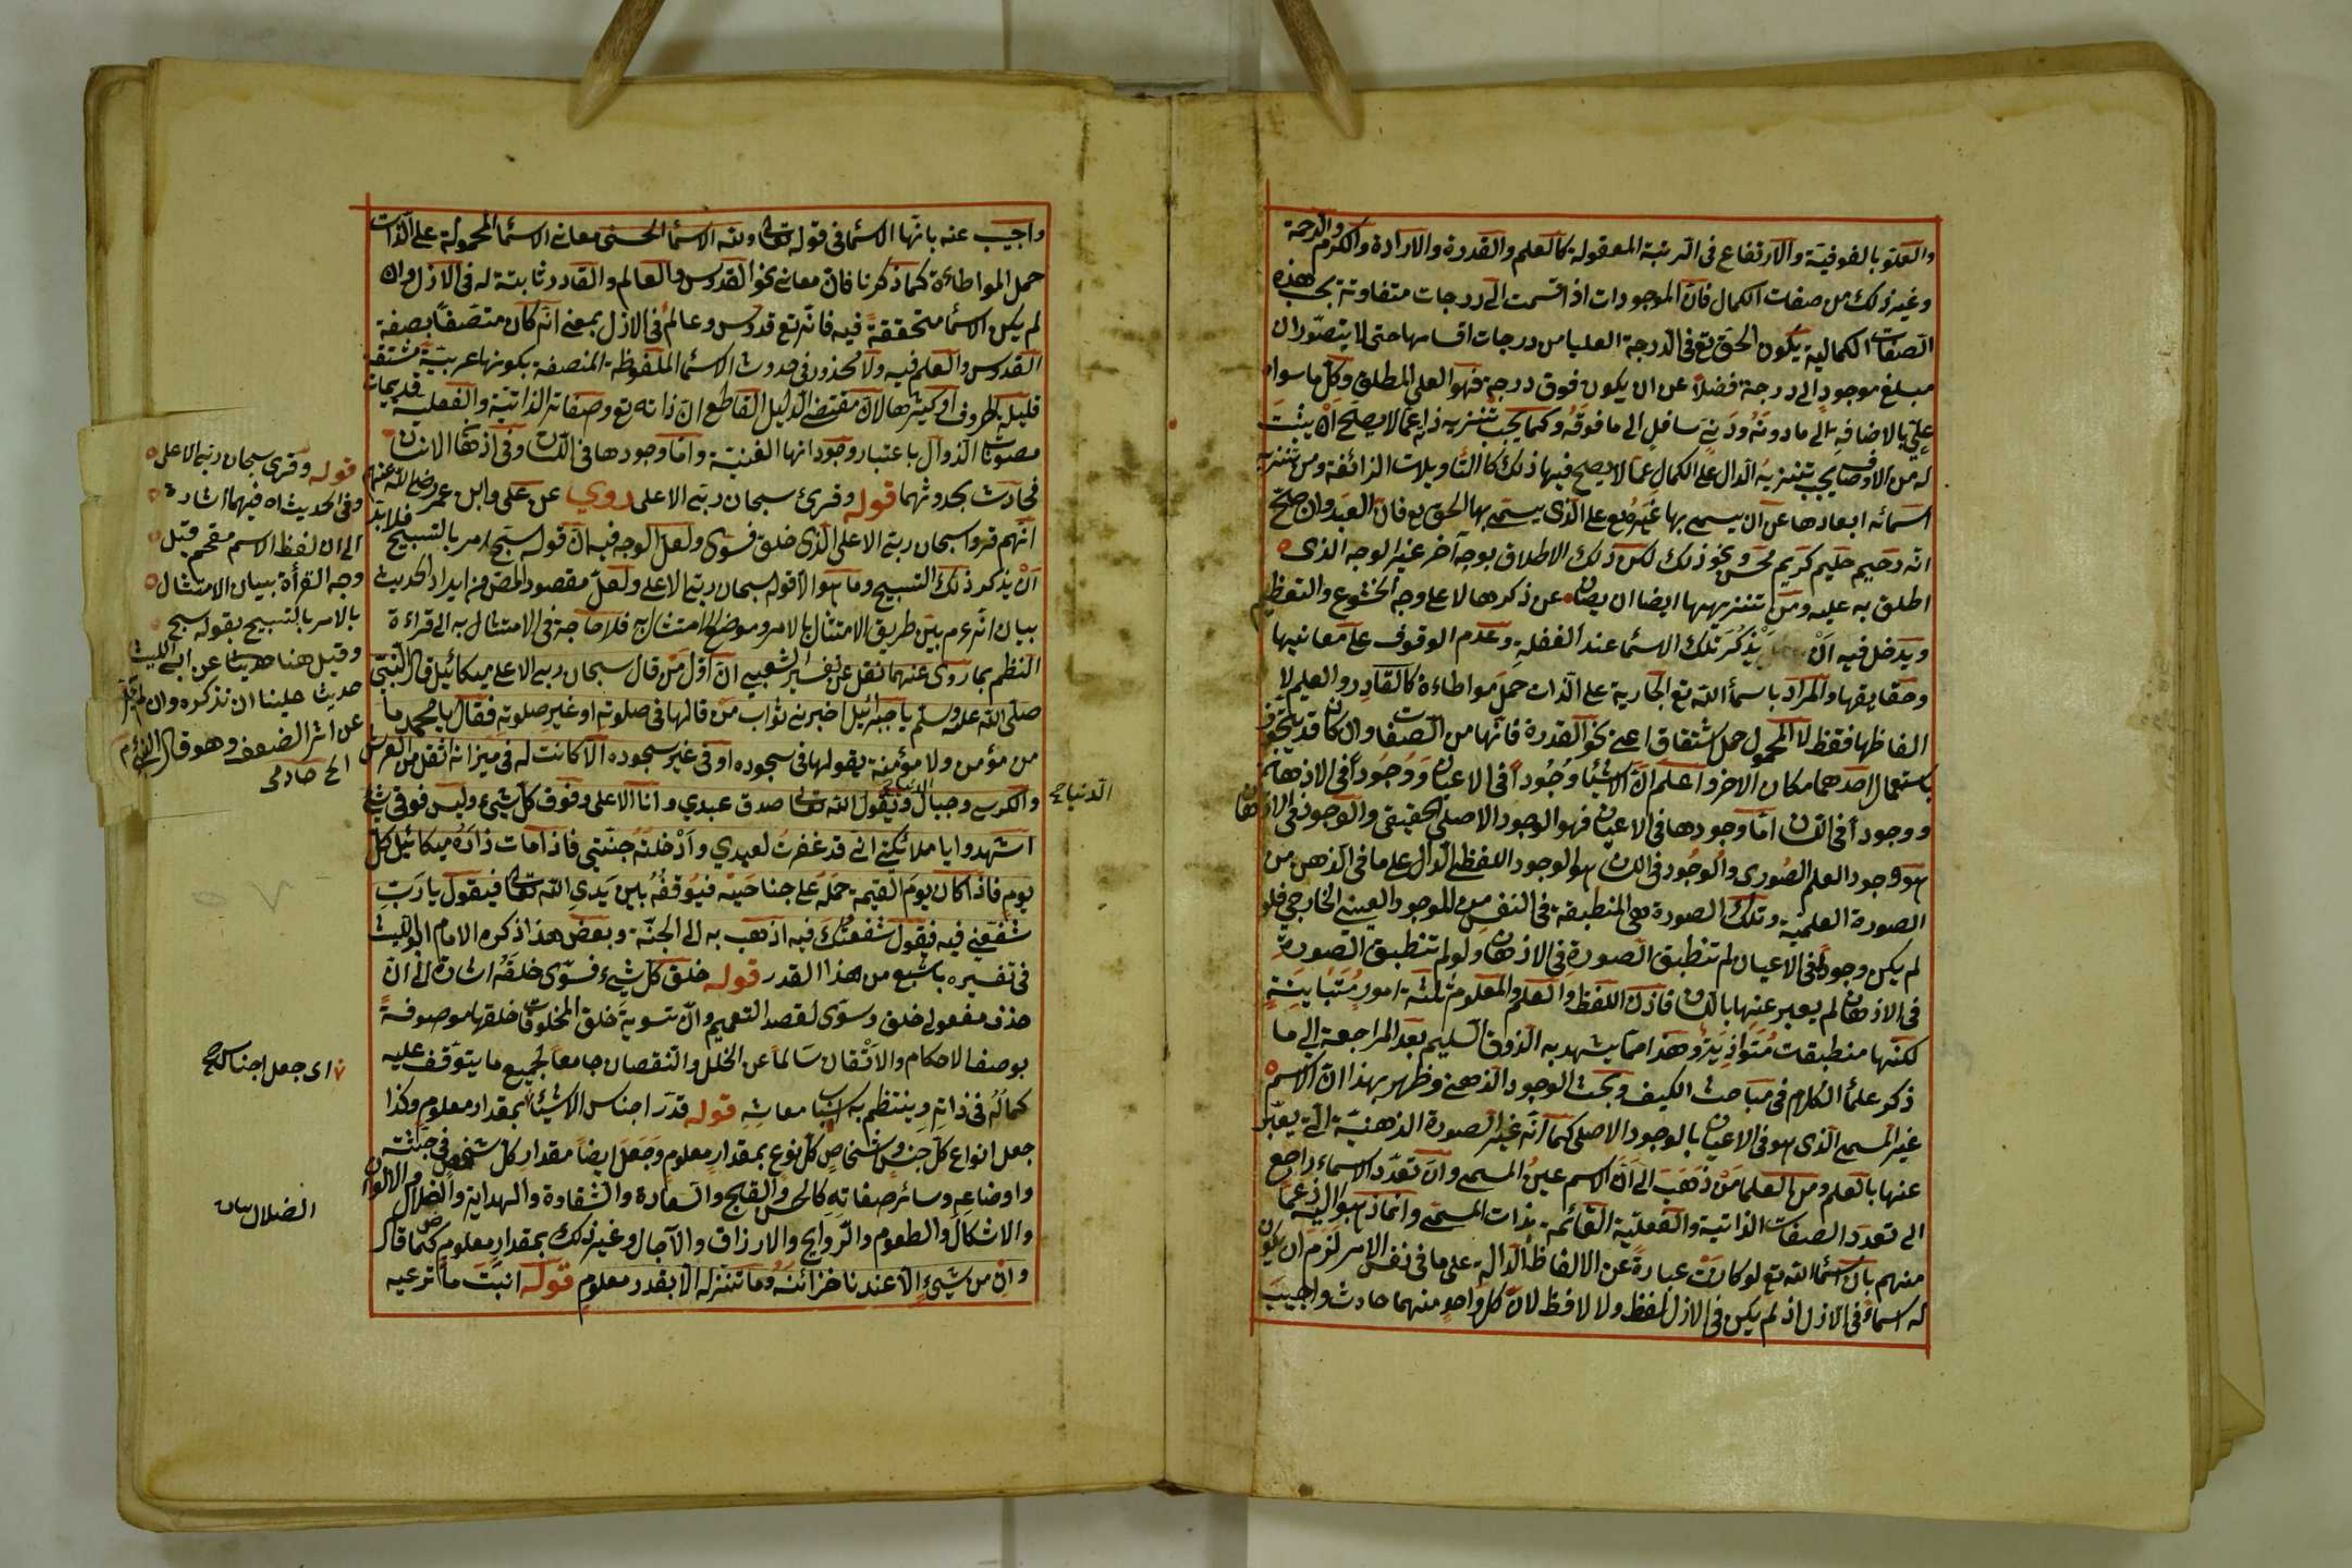 والعلو بالفوقية والارتفاع فى الرتبة المعقولة كالعلم والقدرة والارادة والكرم والرحمة
وغير ذلك من صفات الكمال فان الموجودات اذا قسمت الى درجات متفاوتة بحسب هذه
الصفات الكمالية يكون الحق تع فى الدرجة العليا من درجات اقسامها حتى لا يتصور ان
مبلغ موجود الى درجة فضلا عن ان يكون فوق درجته فهو العلى المطلق وكل ما سواه
علىّ بالاضافة الى ما دونه ودنىّ سافل الى ما فوقه وكما يجب تنزيه ذاته عما لا يصلح ان يثبت
له من الاوصاف يجب تنزيه الدال على الكمال عما لا يصح فيها ذلك كالتأويلات الزائفة ومن تنزيه
اسمائه ابعادها عن ان يسمى بها غيره تع على الذى يسمى بها الحق تع فان العبد وان صح
انه رحيم حليم كريم محسن ونحو ذلك لكن ذلك الاطلاق بوجه آخر غير الوجه الذى
اطلق به عليه ومن تنزيهها ايضا ان يصان عن ذكرها لا على وجه الخشوع والتعظيم
ويدخل فيه ان يذكر تلك الاسما عند الغفلة وعدم الوقوف على معانيها
وحقايقها والمراد باسماء الله تع الجارية على الذات حمل مواطاءة كالقادر والعليم لا
الفاظها فقط لا المحمول حمل اشتقاق اعنى نحو القدرة فانها من الصفات وان كان قد يتجوز
باستعمال احدهما مكان الاخر واعلم ان للاشيا وجودا فى الاعيان ووجودا فى الاذهان
ووجودا فى اللسان اما وجودها فى الاعيان فهو الوجود الاصلى الحقيقى والوجود فى الاذهان
هو وجود العلم الصورى والوجود فى اللسان هو الوجود اللفظى الدال على ما فى الذهن من
الصورة العلمية وتلك الصورة هى المنطبقة فى النفس من الموجود العينى الخارجى فلو
لم يكن وجود فى الاعيان لم تنطبق الصورة فى الاذهان ولو لم تنطبق الصورة
فى الاذهان لم يعبر عنها باللسان فاذن اللفظ والعلم والمعلوم ثلثة امور متباينة
لكنها منطبقات متوازية وهذا مما يشهد به الذوق السليم بعد المراجعة الى ما
ذكر علماء الكلام فى مباحث الكيف وبحث الوجود الذهنى وظهر بهذا ان الاسم
غير المسمى الذى هو فى الاعيان بالوجود الاصلى كما انه غير الصورة الذهنية التى يعبر
عنها بالعلم ومن العلما من ذهب الى ان الاسم عين المسمى وان تعدد الاسماء راجع
الى تعدد الصفات الذاتية والفعلية القائمة بذات المسمى وانما ذهبوا اليه زعما
منهم بان اسماء الله تع لو كانت عبارة عن الالفاظ الدالة على ما فى نفس الامر لزم ان يكون
له اسماء فى الازل اذ لم يكن فى الازل لفظ ولا لافظ لان كل واحد منهما حادث واجيب
واجيب عنه بانها الاسما فى قوله تعالى ولله الاسما الحسنى معانى الاسما المحمولة على الذات
حمل المواطاءة كما ذكرنا فان معانى نحو القدوس والعالم والقادر ثابتة له فى الازل وان
لم يكن الاسما متحققة فيه فانه تع قدوس وعالم فى الازل بمعنى انه كان متصفا بصفة
القدوس والعلم فيه ولا محذور فى حدوث الاسما الملفوظة المتصفة بكونها عربية مشتقة
قليلة الحروف او كثيرها لان مقتضى الدليل القاطع ان ذاته تع وصفاته الذاتية والفعلية قديمات
مصونات الزوال باعتبار وجوداتها العينية واما وجودها فى اللسان وفى اذهان الانسان
فحادث بحدوثهما قوله وقرئ سبحان ربى الاعلى روى عن على وابن عمر رضى الله عنهم
انهم قرءوا سبحان ربى الاعلى الذى خلق فسوى ولعل الوجه فيه ان قوله سبح امر بالتسبيح فلا بد
ان يذكر ذلك التسبيح وما هو الا قوله سبحان ربى الاعلى ولعل مقصود المص من ايراد الحديث
بيان انه عم بين طريق الامتثال بالامر وموضع الامتثال به فلا حاجة فى الامتثال به الى قراءة
النظم بما روى عنهما نقل عن تفسير الشعبى ان اول من قال سبحان ربى الاعلى ميكائيل قال النبى
صلى الله عليه وسلم يا جبرائيل اخبرنى ثواب من قالها فى صلوته او غير صلوته فقال يا محمد ما
من مؤمن ولا مؤمنة يقولها فى سجوده او فى غير سجوده الا كانت له فى ميزانه اثقل من العرش
والكرسى وجبال الدنيا ويقول الله تعالى صدق عبدى وانا الاعلى وفوق كل شىء وليس فوقى شىء
اشهدوا يا ملائكتى انى قد غفرت لعبدى وادخلته جنتى فاذا مات زاره ميكائيل كل
يوم فاذا كان يوم القيمة حمله على جناحيه فيوقفه بين يدى الله تعالى فيقول يا رب
شفعنى فيه فيقول شفعتك فيه اذهب به الى الجنة وبعض هذا ذكره الامام ابو الليث
فى تفسيره باشبع من هذا القدر قوله خلق كل شىء فسوى خلقه اشارة الى ان
حذف مفعولى خلق وسوى لقصد التعميم وان تسوية خلق المخلوقات خلقها موصوفة
بوصف الاحكام والاتقان سالما عن الخلل والنقصان جامعا لجميع ما يتوقف عليه
كماله فى ذاته وينتظم به اسباب معاشه قوله قدر اجناس الاشياء بمقدار معلوم وكذا
جعل انواع كل جنس واشخاص كل نوع بمقدار معلوم وجعل ايضا مقدار كل شخص فى جثته
واوضاعه وسائر صفاته كالحسن والقبح والسعادة والشقاوة والهداية والضلال والالوان
والاشكال والطعوم والروايح والارزاق والآجال وغير ذلك بمقدار معلوم كما قال
وان من شىء الا عندنا خزائنه وما ننزله الا بقدر معلوم قوله انبت ما ترعيه
الدنيا صح
قوله وقرئ سبحان ربى الاعلى
وفى الحديث اه فيهما اشارة
الى ان لفظ الاسم مقحم قيل
وجه القرأة بيان الامتثال
بالامر بالتسبيح بقوله سبح
وقيل هنا حديثا عن ابى الليث
حديث علينا ان نذكره وان لم يخل
عن اثر الضعف وهو قال النبى عم
الخ خادمى
اى جعل اجناس
الضلال بيان